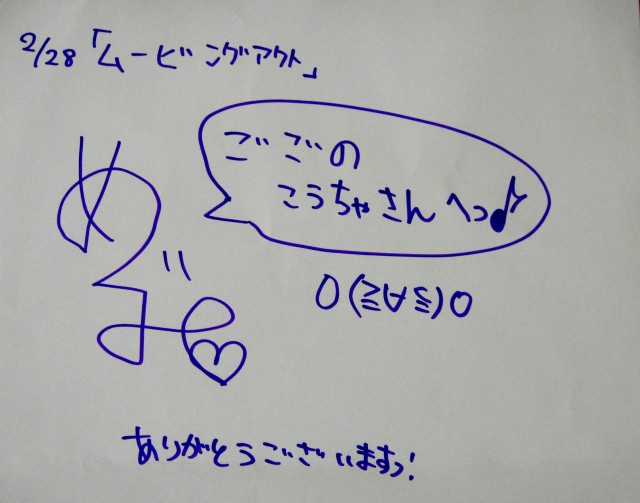 2/28「ムービングアウト」
ごごの
こうちゃさんへっ♪
0(≧∀≦)0
ありがとうございますっ!